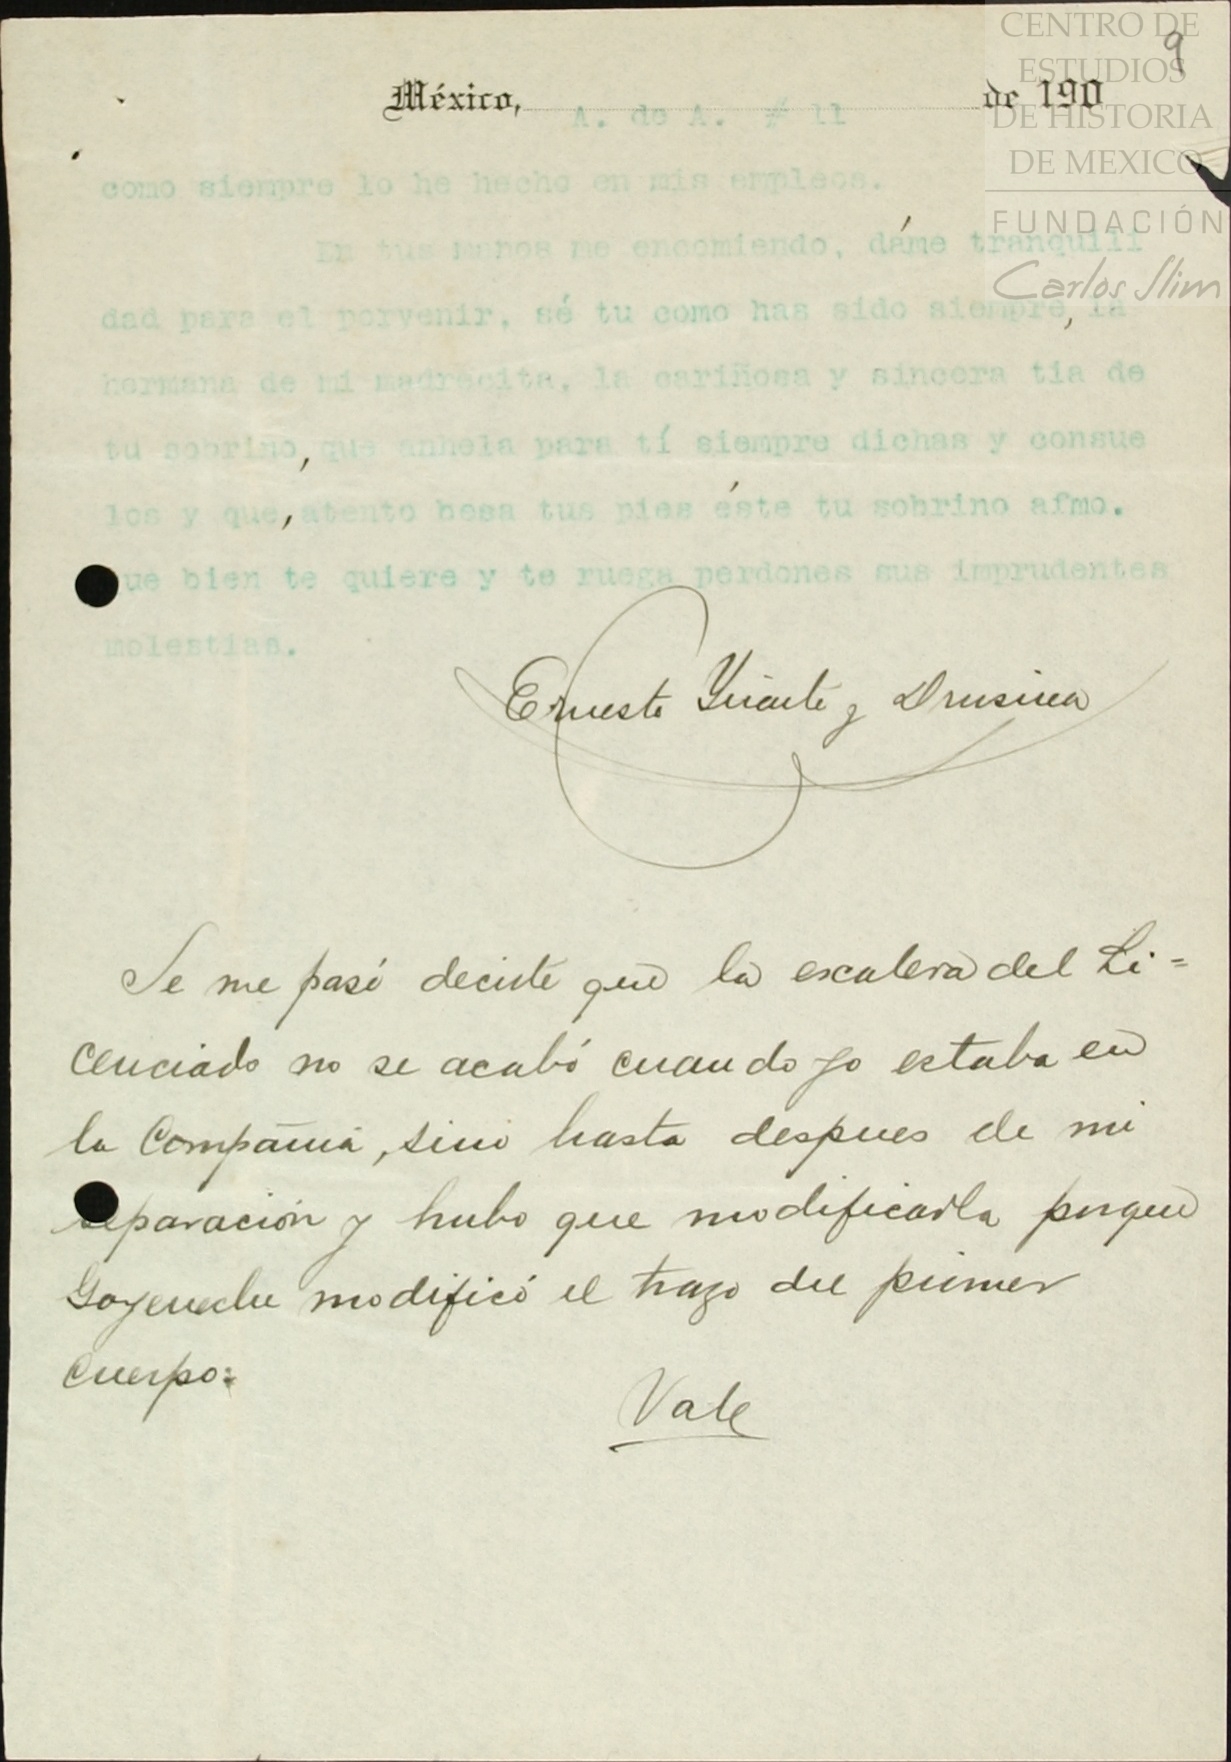 CENTRO DE
ESTUDIOS
DE HISTORIA
DE MEXICO
FUNDACIÓN
Carlos Slim
9
México, de 190
A. de A. # 11
como siempre lo he hecho en mis empleos.
En tus manos me encomiendo, dáme tranquili
dad para el porvenir, sé tu como has sido siempre, la
hermana de mi madrecita, la cariñosa y sincera tia de
tu sobrino, que anhela para tí siempre dichas y consue
los y que, atento besa tus pies éste tu sobrino afmo.
ue bien te quiere y te ruega perdones sus imprudentes
molestias.
Ernesto Yriarte y Drusina
Se me pasó decirte que la escalera del Li=
cenciado no se acabó cuando yo estaba en
la Compañia, sino hasta despues de mi
separación y hubo que modificarla porque
Goyeneche modificó el trazo del primer
cuerpo.
Vale